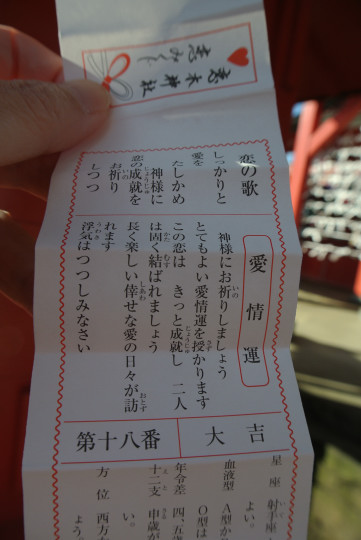 恋木神社
恋みくじ
恋の歌
しっかりと
愛を
たしかめ
神様に
恋の成就を
お祈り
しつつ
愛情運
神様にお祈りしましょう
とてもよい愛情運を授かります
この恋は きっと成就し 二人
は固く結ばれましょう
長く楽しい倖せな愛の日々が訪
れます
浮気はつつしみなさい
大吉
第十八番
星座 射手座
よい。
血液型 A型か
O型は
年令差 四、五
十二支 申歳が
い。
方位 西方
ょう